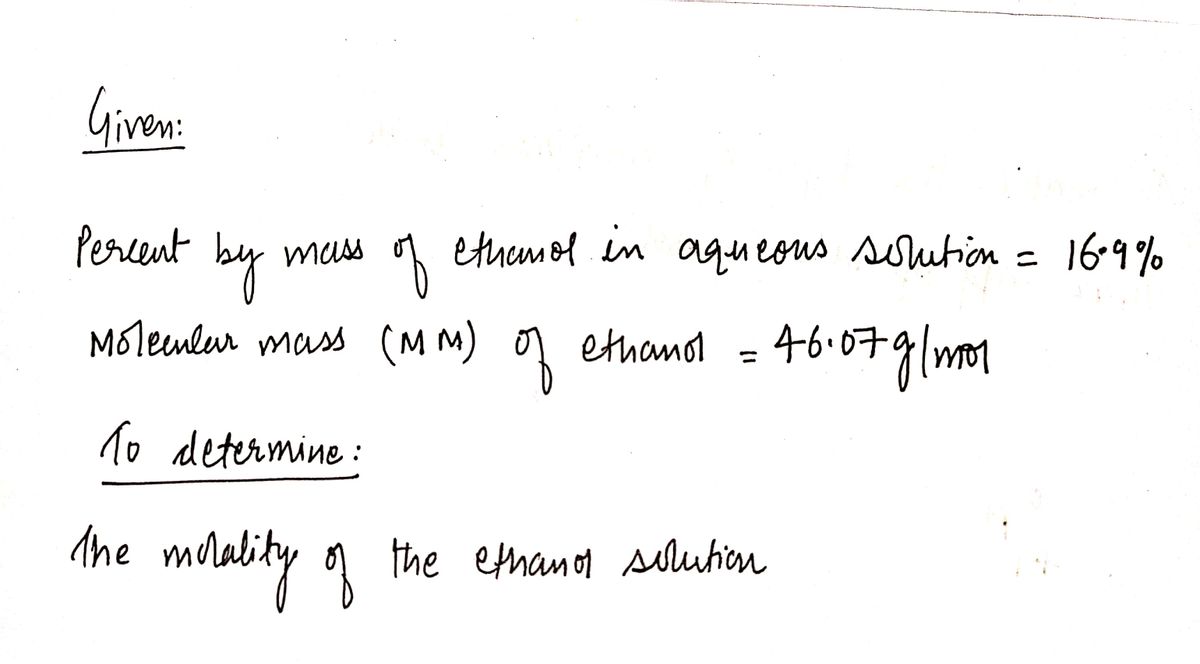 Given:
Percent by mass of ethanol in aqueous solution = 16.9%
Molecular mass (MM) of ethanol = 46.07g/mol
To determine:
The molality of the ethanol solution